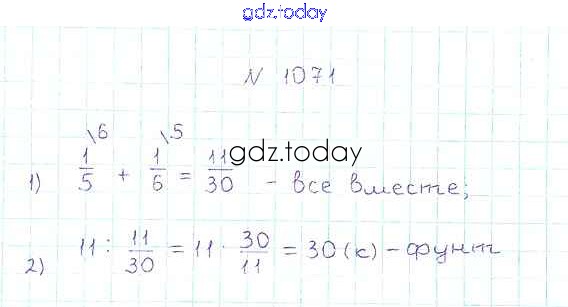 gdz.today
N 1071
1) 1/5 \6 + 1/6 \5 = 11/30 - все вместе;
gdz.today
2) 11 : 11/30 = 11 · 30/11 = 30 (к) - фунт